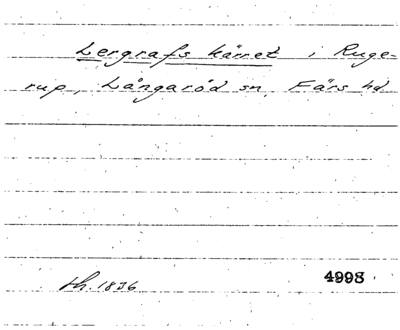 Lergrafs kärret i Ruge-
rup, Långaröd sn, Färs hd
th. 1836
4998